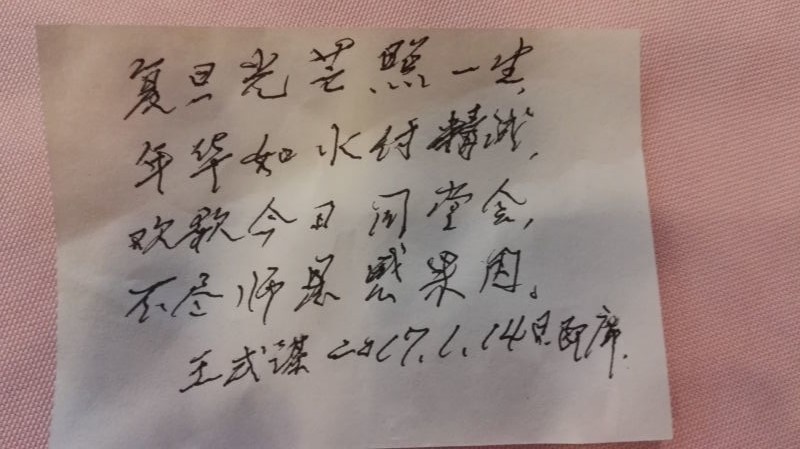 复旦光芒照一生,
年华如水付精诚,
欢歌今日同堂会,
不尽师恩感果因。
王式 2017.1.14日即席.